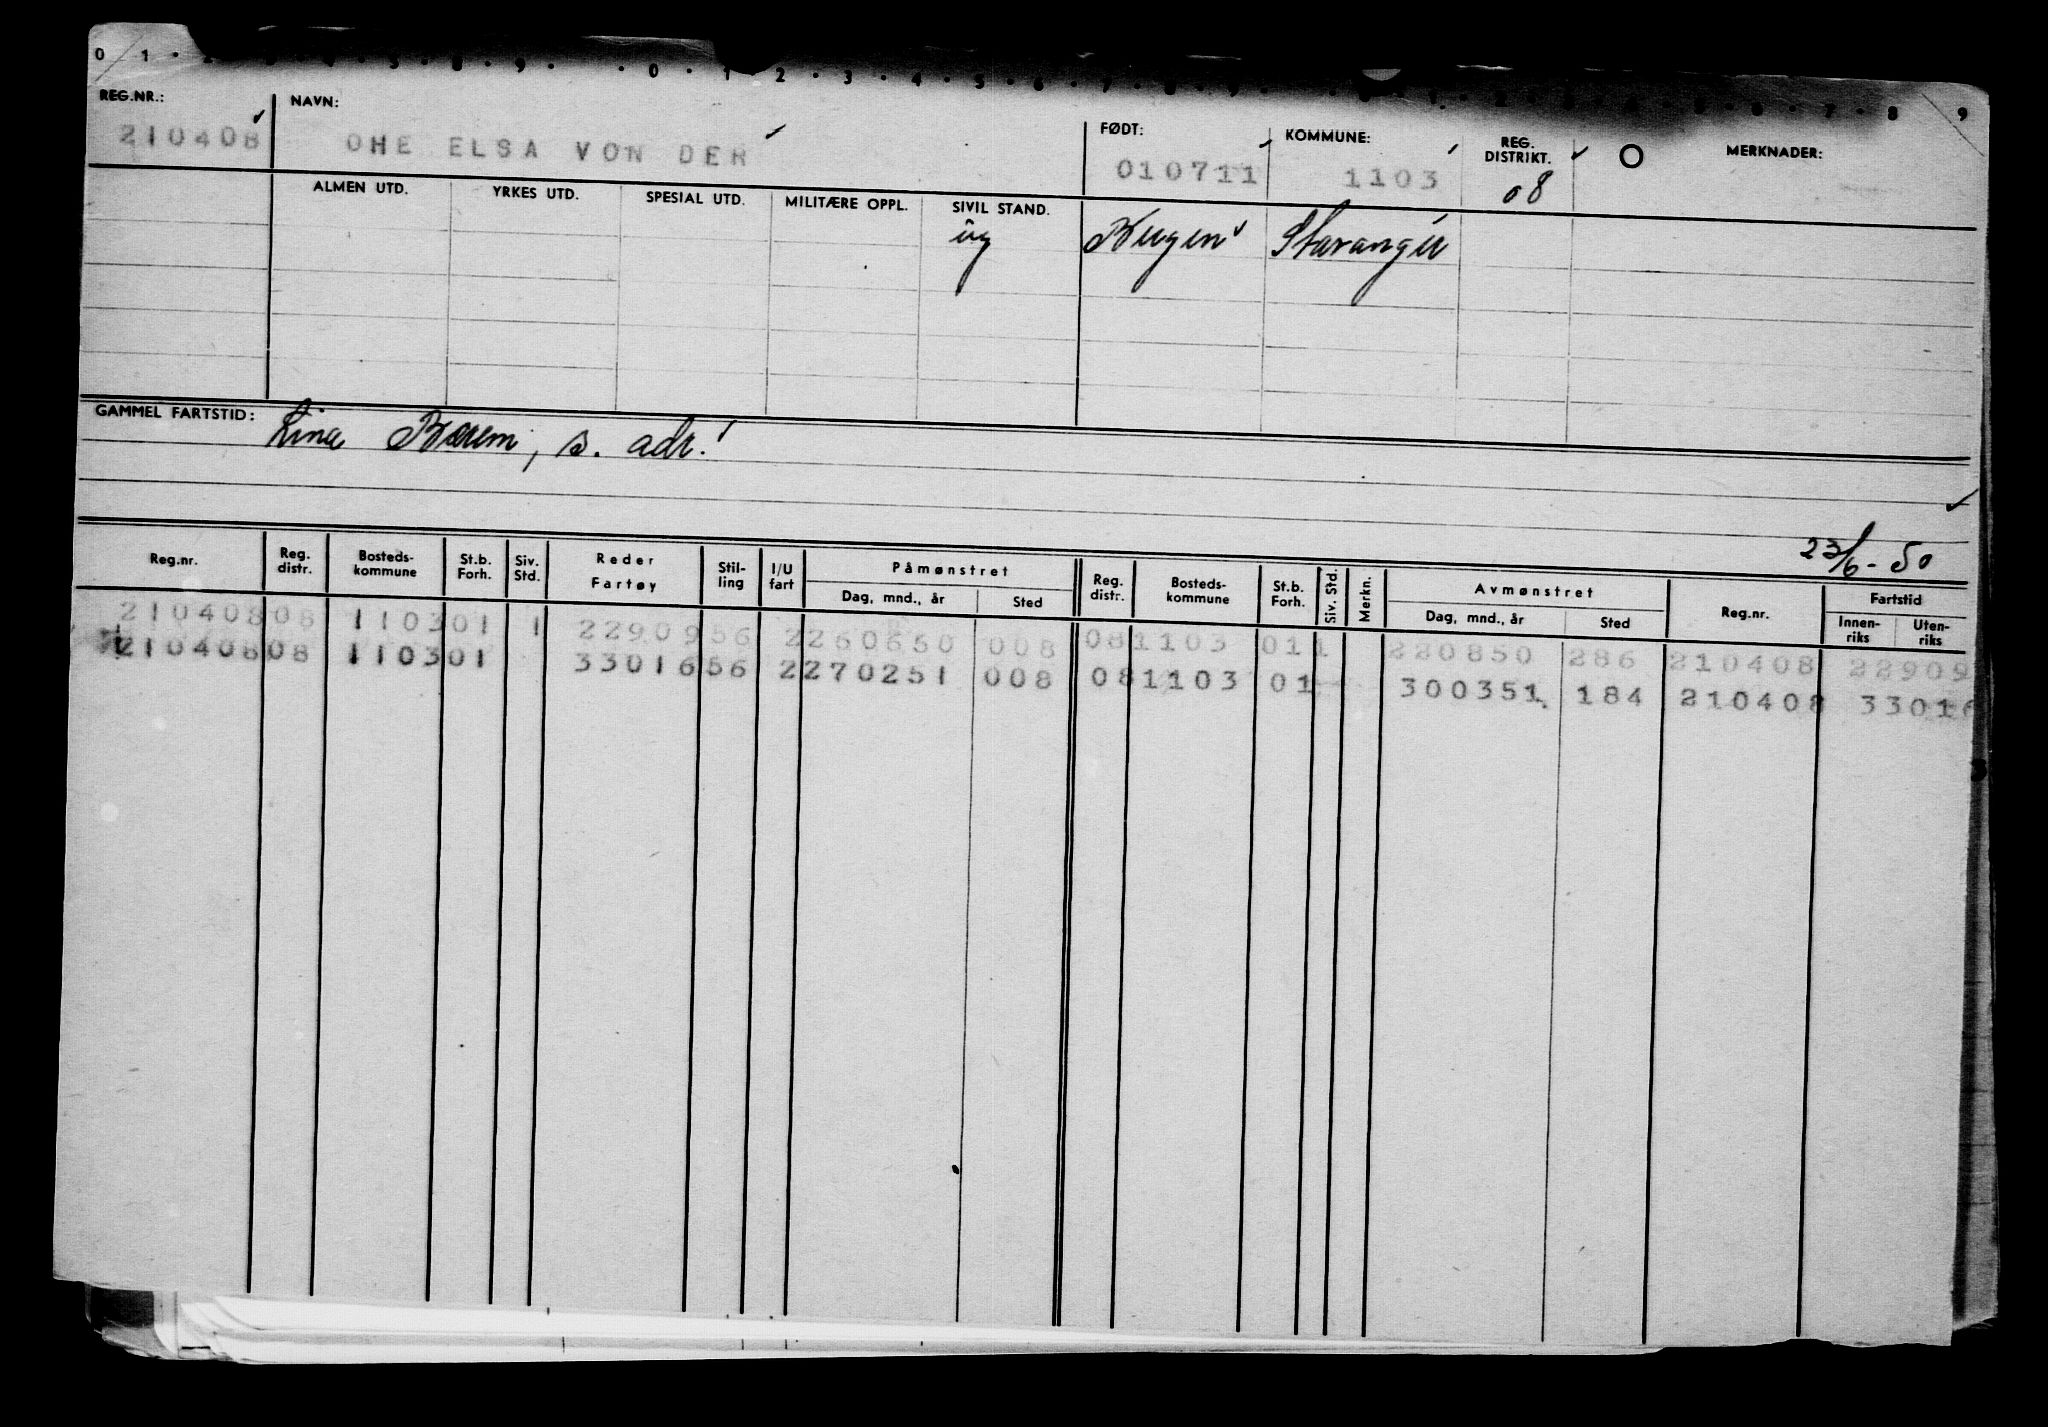 0 1 · 2 · 3 · 4 · 5 · 8 · 9 · · 0 · 1 · 2 · 3 · 4 · 5 · 6 · 7 · 8 · 9 · · 0 · 1 · 2 · 3 · 4 · 5 · 6 · 7 · 8 · 9
REG.NR.: NAVN: FØDT: KOMMUNE: REG. DISTRIKT. O MERKNADER:
210408 OHE ELSA VON DER 010711 1103 08
ALMEN UTD. YRKES UTD. SPESIAL UTD. MILITÆRE OPPL. SIVIL STAND.
ug Bergen Stavanger
GAMMEL FARTSTID: Lina Bærem, s. adr.!
23/6 - 50
Reg.nr. Reg. distr. Bosteds-kommune St.b. Forh. Siv. Std. Reder Fartøy Stil-ling I/U fart Påmønstret Reg. distr. Bosteds-kommune St.b. Forh. Siv. Std. Merkn. Avmønstret Reg.nr. Fartstid
Dag, mnd., år Sted Dag, mnd., år Sted Innen-riks Uten-riks
210408 08 1103 01 1 22909 56 2 260650 008 08 1103 01 1 220850 286 210408 22909
210408 08 1103 01 33016 56 2 270251 008 08 1103 01 300351 184 210408 33016